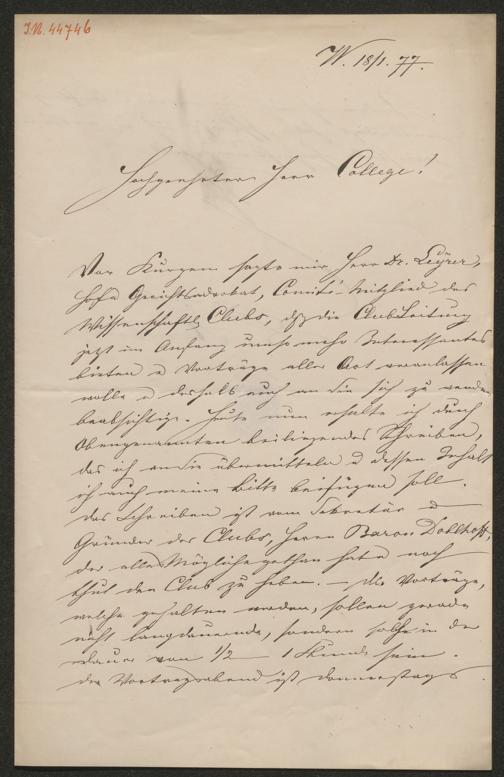 J.N. 44746
W. 18/1. 77.
Hochgeehrter Herr College!
Vor Kurzem sagte mir Herr Dr. Leyrer,
Hof u Gerichtsadvokat, Comité-Mitglied des
Wissenschaftl. Clubs, daß die Clubleitung
jetzt im Anfang umso mehr Interessantes
bieten u Vorträge aller Art veranlassen
wolle u deshalb auch an Sie sich zu wenden
beabsichtige. Heute nun erhalte ich durch
Obengenannten beiliegendes Schreiben,
das ich an Sie übermitteln u dessen Inhalt
ich auch meine Bitte beifügen soll.
Das Schreiben ist vom Sekretär u
Gründer des Clubs, Herrn Baron Doblhoff,
der alles Mögliche gethan hat u noch
thut den Club zu heben. — Die Vorträge,
welche gehalten werden, sollen gerade
nicht langdauernde, sondern solche in der
Dauer von 1/2 — 1 Stunde sein.
Der Vortragsabend ist Donnerstags